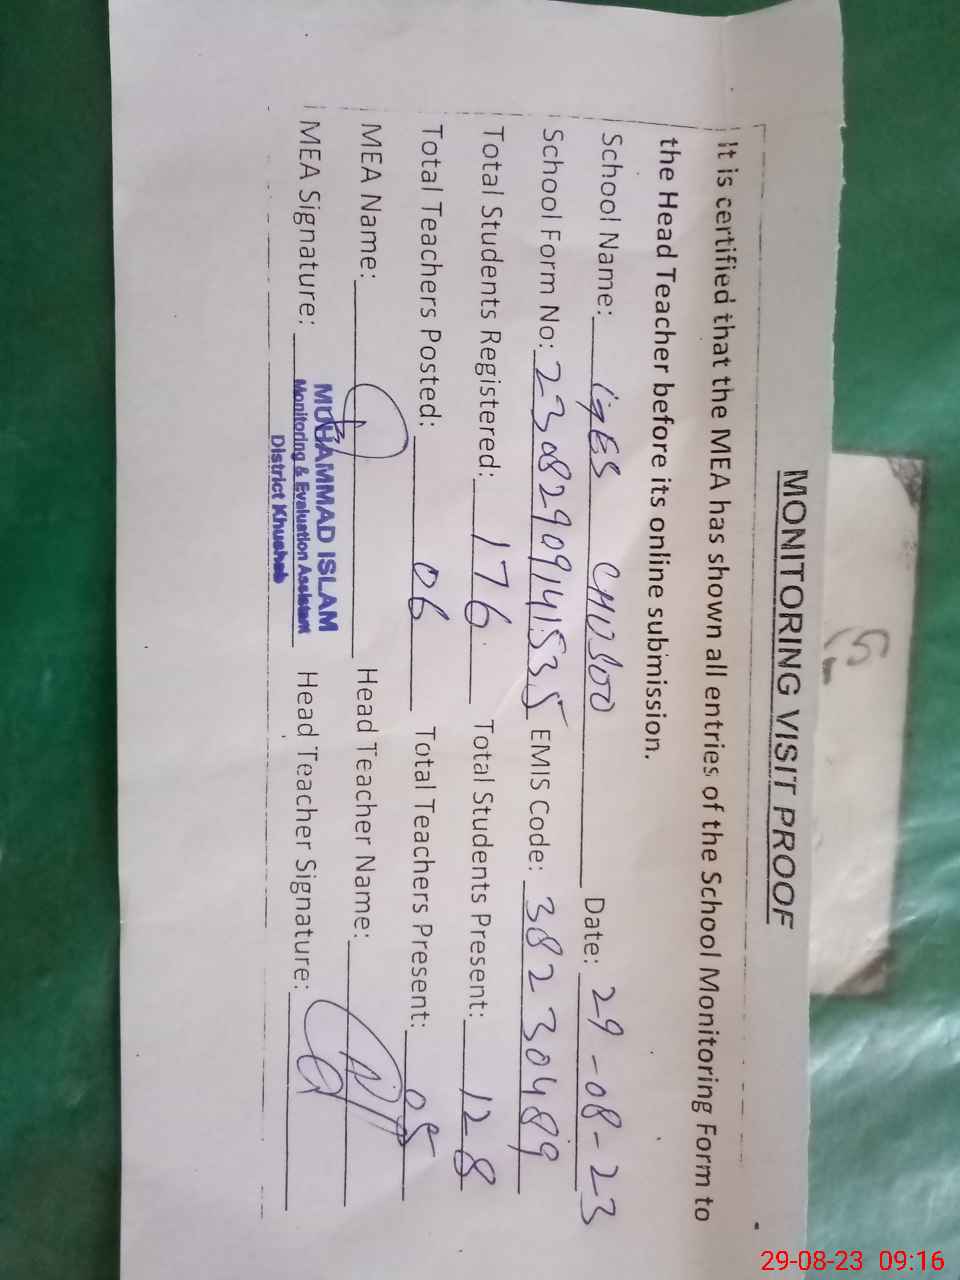 MONITORING VISIT PROOF
It is certified that the MEA has shown all entries of the School Monitoring Form to
the Head Teacher before its online submission.
School Name: GGES CHUSOO Date: 29-08-23
School Form No: 23082909141535 EMIS Code: 38230489
Total Students Registered: 176 Total Students Present: 128
Total Teachers Posted: 06 Total Teachers Present: 05
MEA Name: Head Teacher Name:
MEA Signature: Head Teacher Signature:
MUHAMMAD ISLAM
Monitoring & Evaluation Assistant
District Khushab
29-08-23 09:16